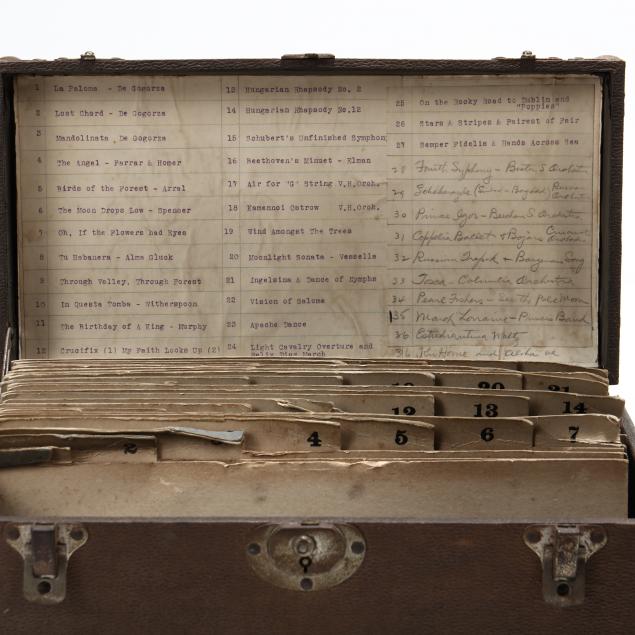 1 La Paloma - De Gogorza
2 Lost Chord - De Gogorza
3 Mandolinata - De Gogorza
4 The Angel - Farrar & Homer
5 Birds of the Forest - Arral
6 The Moon Drops Low - Spencer
7 Oh, If the Flowers had Eyes
8 Tu Habanera - Alma Gluck
9 Through Valley, Through Forest
10 In Questa Tomba - Witherspoon
11 The Birthday of A King - Murphy
12 Crucifix (1) My Faith Looks Up (2)
13 Hungarian Rhapsody No. 2
14 Hungarian Rhapsody No.12
15 Schubert's Unfinished Symphon
16 Beethoven's Minuet - Elman
17 Air for "G" String V.H.Orch.
18 Kamennoi Ostrow V.H.Orch.
19 Wind Amongst The Trees
20 Moonlight Sonata - Vesselle
21 Ingelsina & Dance of Nymphs
22 Vision of Salome
23 Apache Dance
24 Light Cavalry Overture and
Felix Diaz March
25 On the Rocky Road to Dublin and
"Poppies"
26 Stars & Stripes & Fairest of Fair
27 Semper Fidelis & Hands Across Sea
28 Fourth Symphony - Boston S
29
30 Prince Igor - Orchestra
31 Coppelia Ballet &
32 Russian Trepak & Song
33 Tosca - Columbia Orchestra
34 Pearl Fishers - See the Pale Moon
35 March Lorraine - Band
36 Estudiantina Waltz
Home and Aloha oe
19 20 21
12 13 14
2 4 5 6 7